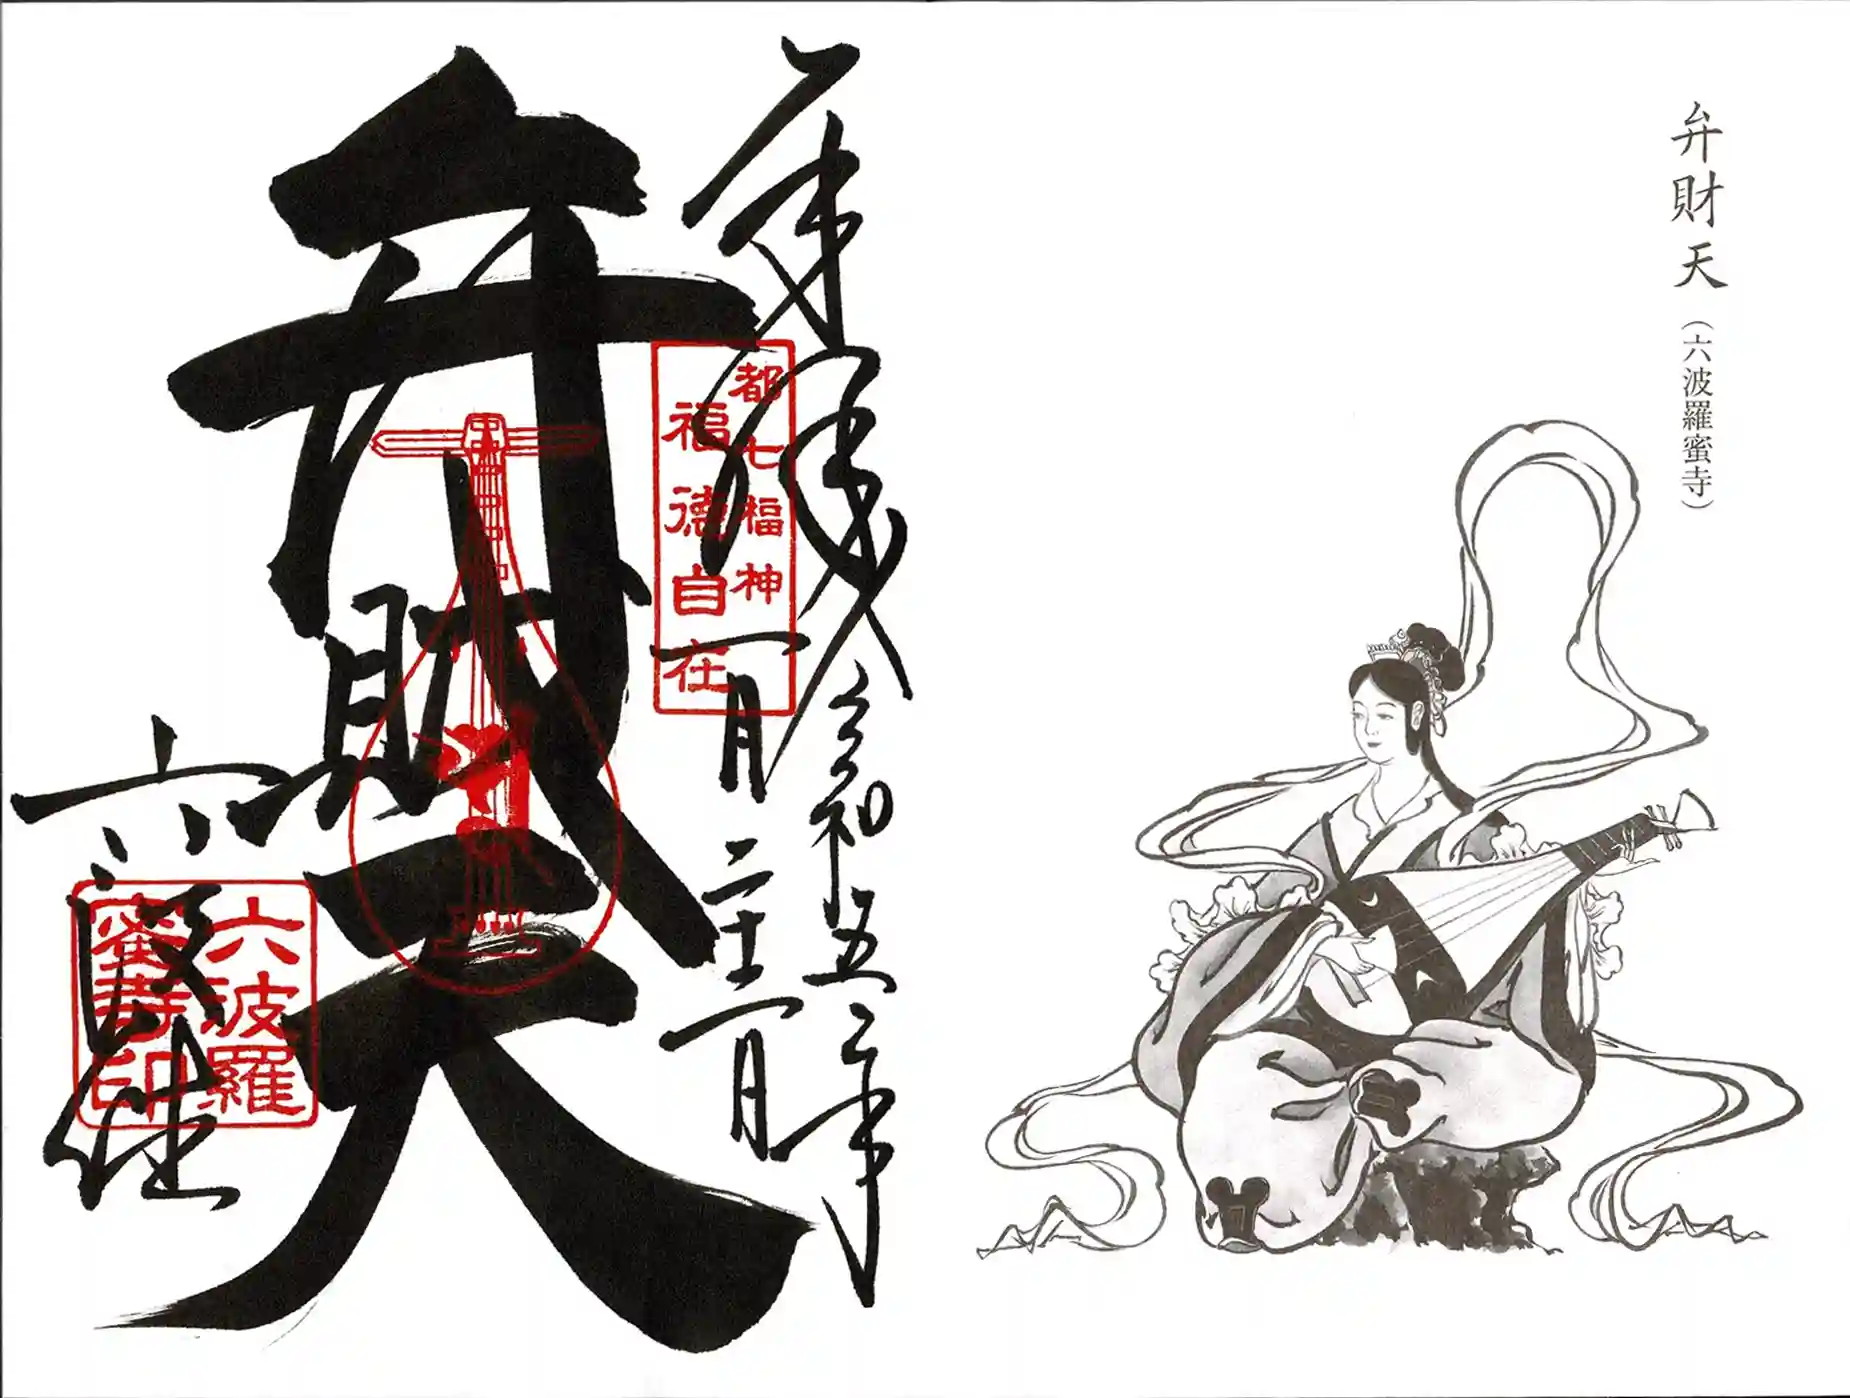 弁財天（六波羅蜜寺）
奉拝 令和五年
一月二十一日
都七福神
福徳自在
弁財天
六波羅
蜜寺印